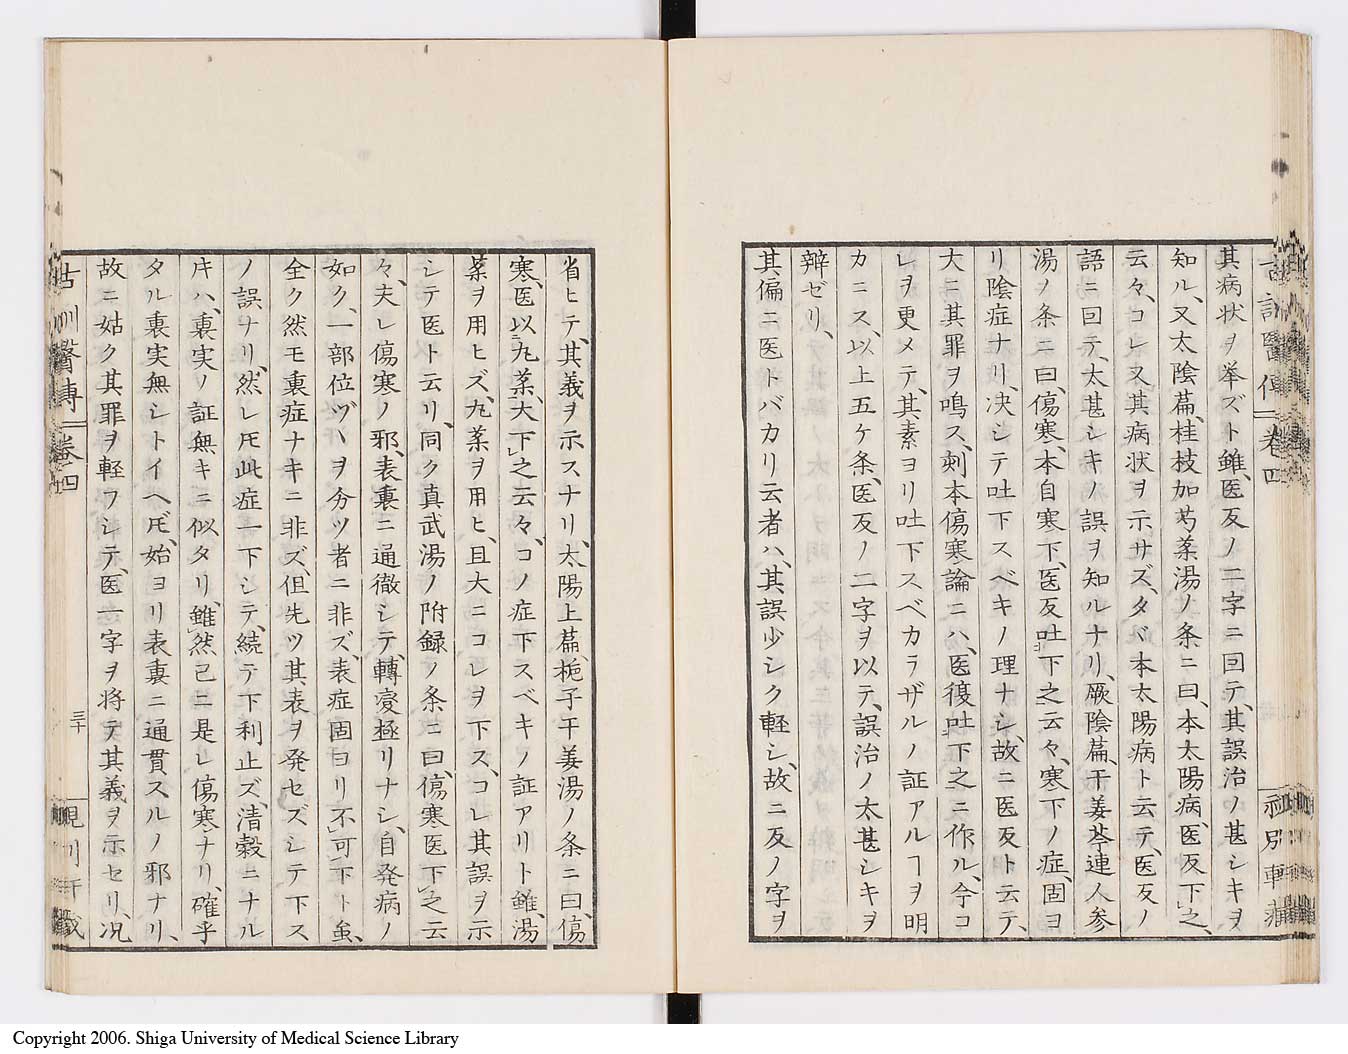 其病状ヲ挙ズト雖、医反ノ二字ニ回テ、其誤治ノ甚シキヲ
知ル、又太陰篇、桂枝加芍薬湯ノ条ニ曰、本太陽病、医反下之、
云々、コレ又其病状ヲ示サズ、タバ本太陽病ト云テ、医反ノ
語ニ曰テ、太甚シキノ誤ヲ知ルナリ、厥陰篇、干姜芩連人参
湯ノ条ニ曰、傷寒、本自寒下、医反吐下之云々、寒下ノ症、固ヨ
リ陰症ナリ、决シテ吐下スベキノ理ナシ、故ニ医反ト云テ、
大ニ其罪ヲ鳴ス、刻本傷寒論ニハ、医復吐下之ニ作ル、今コ
レヲ更メテ、其素ヨリ吐下スベカラザルノ証アルヿヲ明
カニス、以上五ケ条、医反ノ二字ヲ以テ、誤治ノ太甚シキヲ
辯ゼリ、
其偏ニ医トバカリ云者ハ、其誤少シク軽シ、故ニ反ノ字ヲ
省ヒテ、其義ヲ示スナリ、太陽上篇、梔子干姜湯ノ条ニ曰、傷
寒、医以丸薬、大下之云々、コノ症下スベキノ証アリト雖、湯
薬ヲ用ヒズ、丸薬ヲ用ヒ、且大ニコレヲ下ス、コレ其誤ヲ示
シテ医ト云リ、同ク真武湯ノ附録ノ条ニ曰、傷寒医下之云
々、夫レ傷寒ノ邪、表裏ニ通徹シテ、轉変極リナシ、自発病ノ
如ク、一部位ヅヽヲ分ツ者ニ非ズ、表症固ヨリ不可下ト虽、
全ク然モ裏症ナキニ非ズ、但先ツ其表ヲ発セズシテ下ス
ノ誤ナリ、然レ𪜈此症一下シテ、続テ下利止ズ、清穀ニナル
𪜈ハ、裏実ノ証無キニ似タリ、雖然已ニ是レ傷寒ナリ、確乎
タル裏実無シトイヘ𪜈、始ヨリ表裏ニ通貫スルノ邪ナリ、
故ニ姑ク其罪ヲ軽フシテ、医一字ヲ将テ其義ヲ示セリ、况
古訓醫傳 巻四
三十
Copyright 2006. Shiga University of Medical Science Library